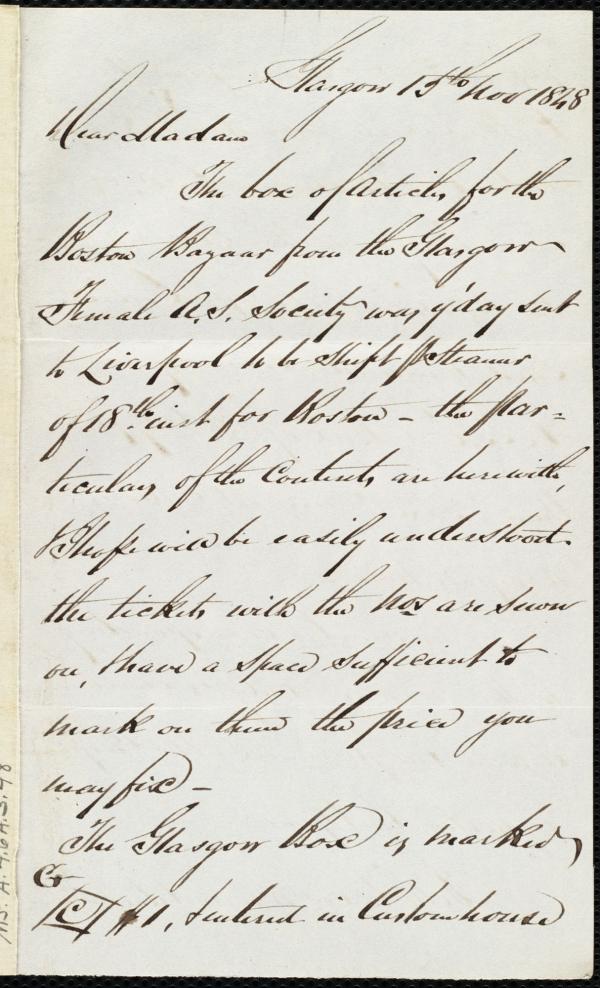 Glasgow 15th Nov 1848
Dear Madam
The box of Articles for the
Boston Bazaar from the Glasgow
Female A.S. Society was y'day sent
to Liverpool to be shipt p Steamer
of 18th inst for Boston – the par=
ticulars of the Contents are herewith,
& I hope will be easily understood.
the tickets with the Nos are sewn
on, & have a space sufficient to
mark on them the price you
may fix –
The Glasgow Box is marked
G
C #1, & entered in Customhouse
Ms. A.9.2